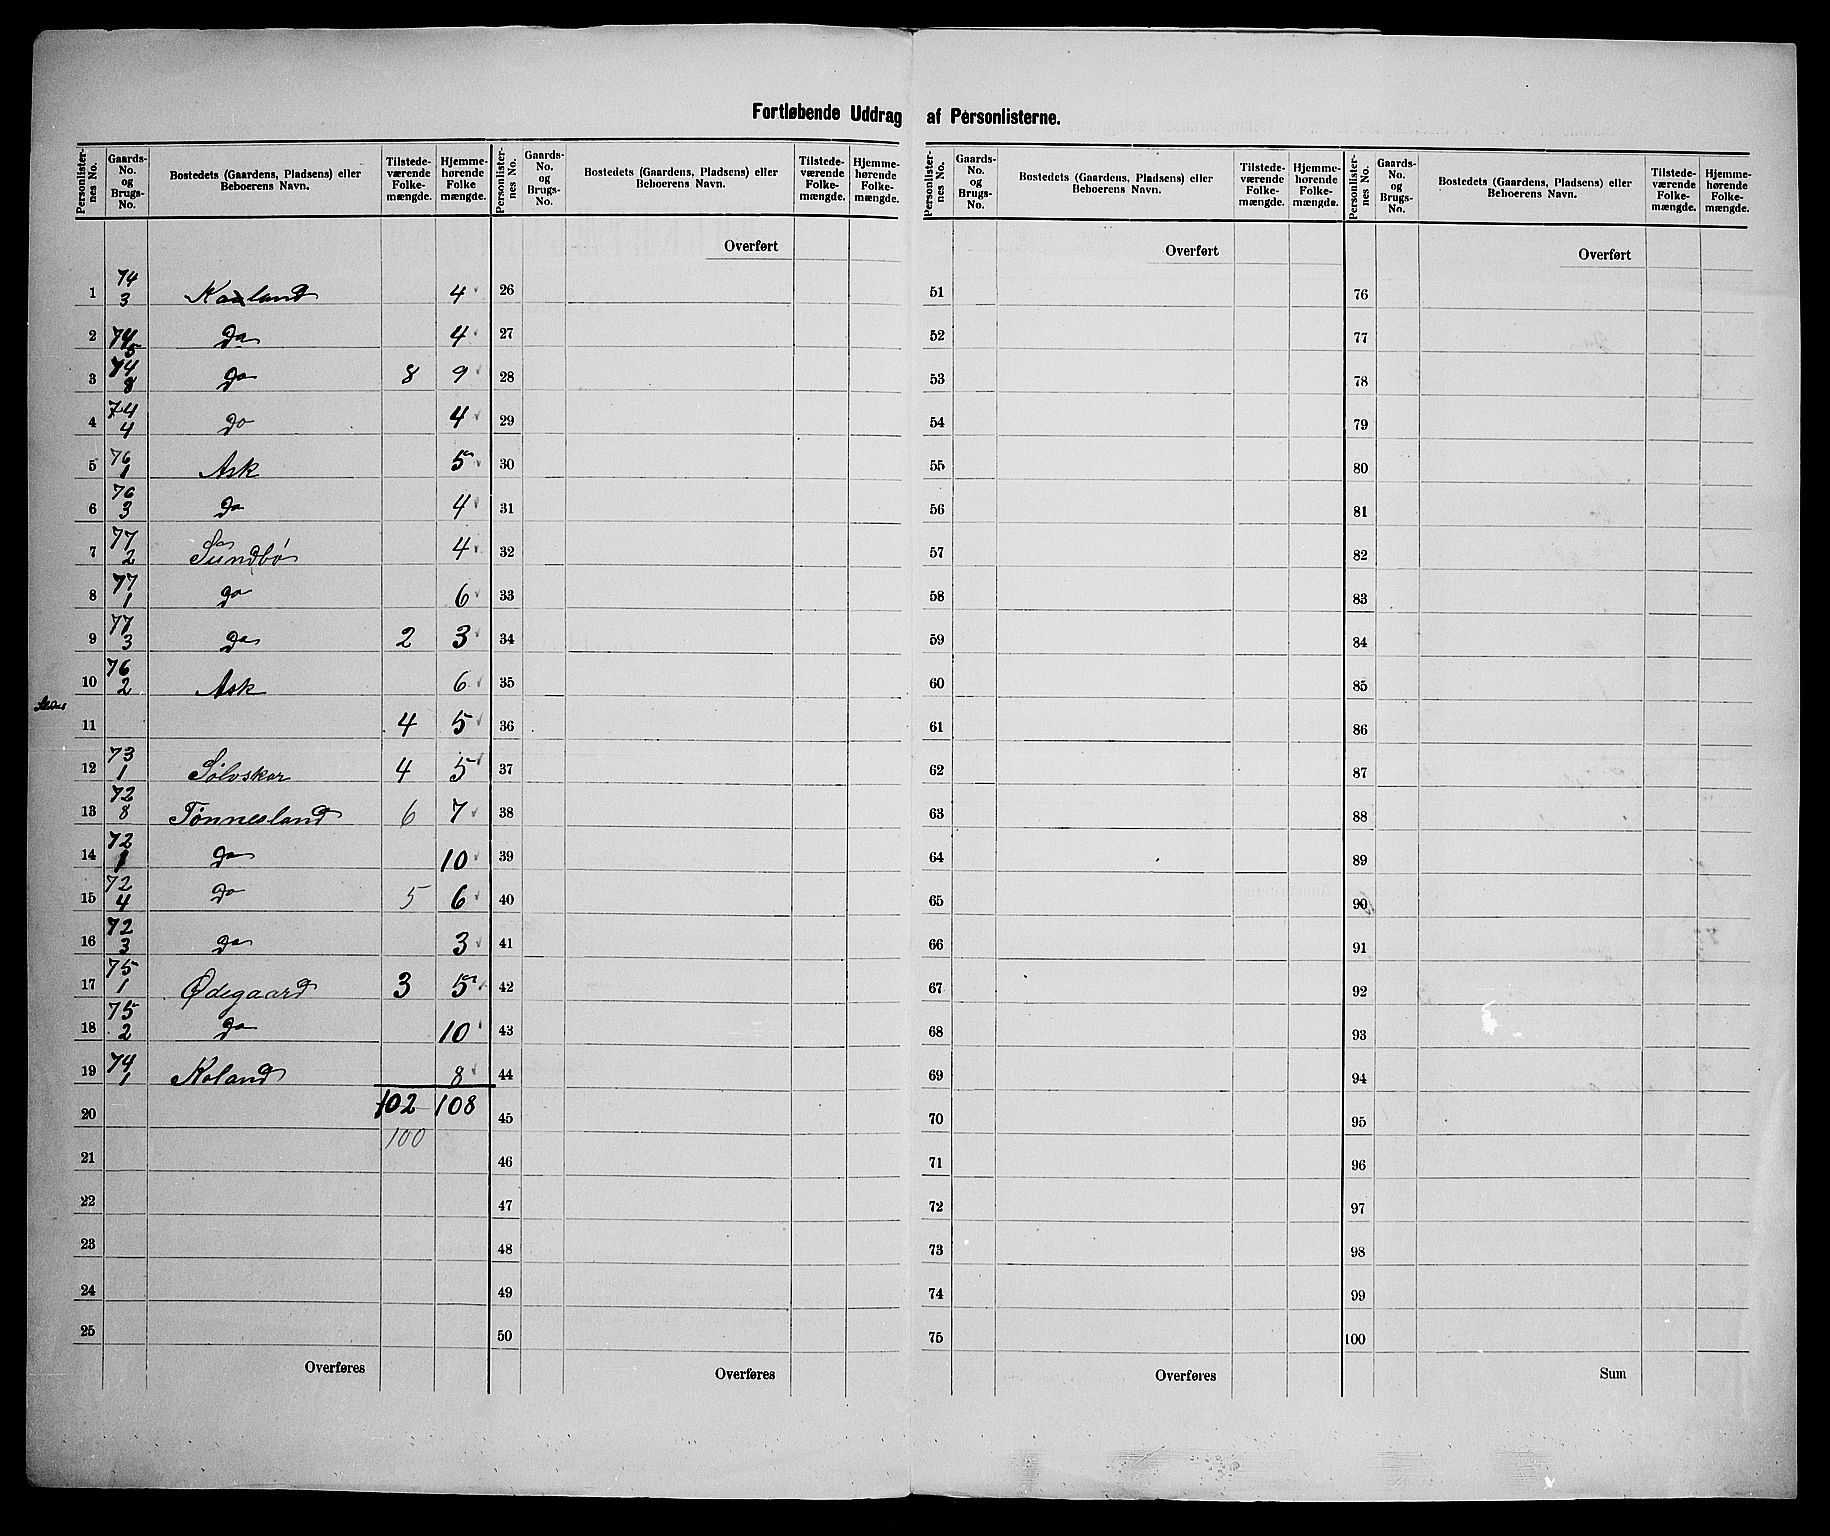 Fortløbende Uddrag af Personlisterne.
Personlister-nes No. | Gaards-No. og Brugs-No. | Bostedets (Gaardens, Pladsens) eller Beboerens Navn. | Tilstede-værende Folke-mængde. | Hjemme-hørende Folke-mængde.
1 74/3 Kaaland 4
2 74/5 Do 4
3 74/8 Do 8 9
4 74/4 Do 4
5 76/1 Ask 5
6 76/3 Do 4
7 77/2 Sundbø 4
8 77/1 Do 6
9 77/3 Do 2 3
10 76/2 Ask 6
11 4 5
12 73/1 Sølvskar 4 5
13 72/8 Tønnesland 6 7
14 72/1 Do 10
15 72/4 Do 5 6
16 72/3 Do 3
17 75/1 Ødegaard 3 5
18 75/2 Do 10
19 74/1 Koland 8
20 102 108
100
21
22
23
24
25
Overføres
Personlister-nes No. | Gaards-No. og Brugs-No. | Bostedets (Gaardens, Pladsens) eller Beboerens Navn. | Tilstede-værende Folke-mængde. | Hjemme-hørende Folke-mængde.
Overført
26
27
28
29
30
31
32
33
34
35
36
37
38
39
40
41
42
43
44
45
46
47
48
49
50
Overføres
Personlister-nes No. | Gaards-No. og Brugs-No. | Bostedets (Gaardens, Pladsens) eller Beboerens Navn. | Tilstede-værende Folke-mængde. | Hjemme-hørende Folke-mængde.
Overført
51
52
53
54
55
56
57
58
59
60
61
62
63
64
65
66
67
68
69
70
71
72
73
74
75
Overføres
Personlister-nes No. | Gaards-No. og Brugs-No. | Bostedets (Gaardens, Pladsens) eller Beboerens Navn. | Tilstede-værende Folke-mængde. | Hjemme-hørende Folke-mængde.
Overført
76
77
78
79
80
81
82
83
84
85
86
87
88
89
90
91
92
93
94
95
96
97
98
99
100
Sum